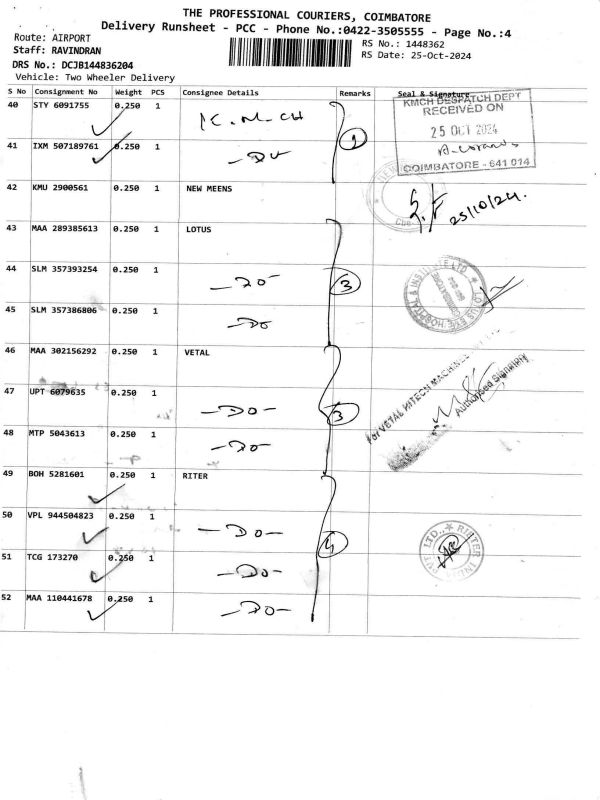 THE PROFESSIONAL COURIERS, COIMBATORE
Delivery Runsheet - PCC - Phone No.:0422-3505555 - Page No.:4
Route: AIRPORT
RS No.: 1448362
Staff: RAVINDRAN
RS Date: 25-Oct-2024
DRS No.: DCJB144836204
Vehicle: Two Wheeler Delivery
S No Consignment No Weight PCS Consignee Details Remarks Seal & Signature
40 STY 6091755 0.250 1 K.M.CH
41 IXM 507189761 0.250 1 -DO-
KMCH DESPATCH DEPT
RECEIVED ON
25 OCT 2024
COIMBATORE - 641 014
42 KMU 2900561 0.250 1 NEW MEENS
25/10/24.
43 MAA 289385613 0.250 1 LOTUS
44 SLM 357393254 0.250 1 -DO-
45 SLM 357386806 0.250 1 -DO
46 MAA 302156292 0.250 1 VETAL
47 UPT 6079635 0.250 1 -DO-
48 MTP 5043613 0.250 1 -DO-
3
For VETAL HITECH MACHINE
Authorised Signatory
49 BOH 5281601 0.250 1 RITER
50 VPL 944504823 0.250 1 -DO-
51 TCG 173270 0.250 1 -DO-
52 MAA 110441678 0.250 1 -DO-
4